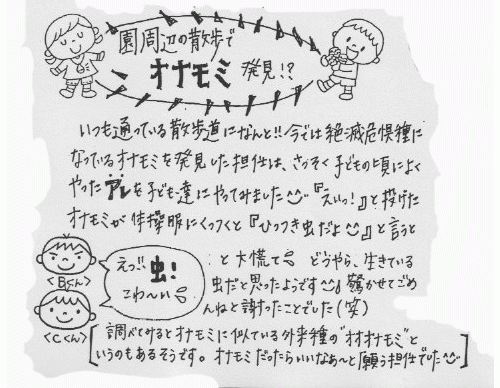 園周辺の散歩で
オナモミ発見!?
いつも通っている散歩道になんと!!今では絶滅危惧種に
なっているオナモミを発見した担任は、さっそく子どもの頃によく
やったアレを子ども達にやってみました『えいっ!』と投げた
オナモミが体操服にくっつくと『ひっつき虫だよ』と言うと
えっ虫!
こわ〜い
<Bくん>
<Cくん>
と大慌て。どうやら、生きている
虫だと思ったようです。驚かせてごめ
んねと謝ったことでした(笑)
調べてみるとオナモミに似ている外来種の"オオオナモミ"と
いうのもあるそうです。オナモミだったらいいなあ〜と願う担任でした